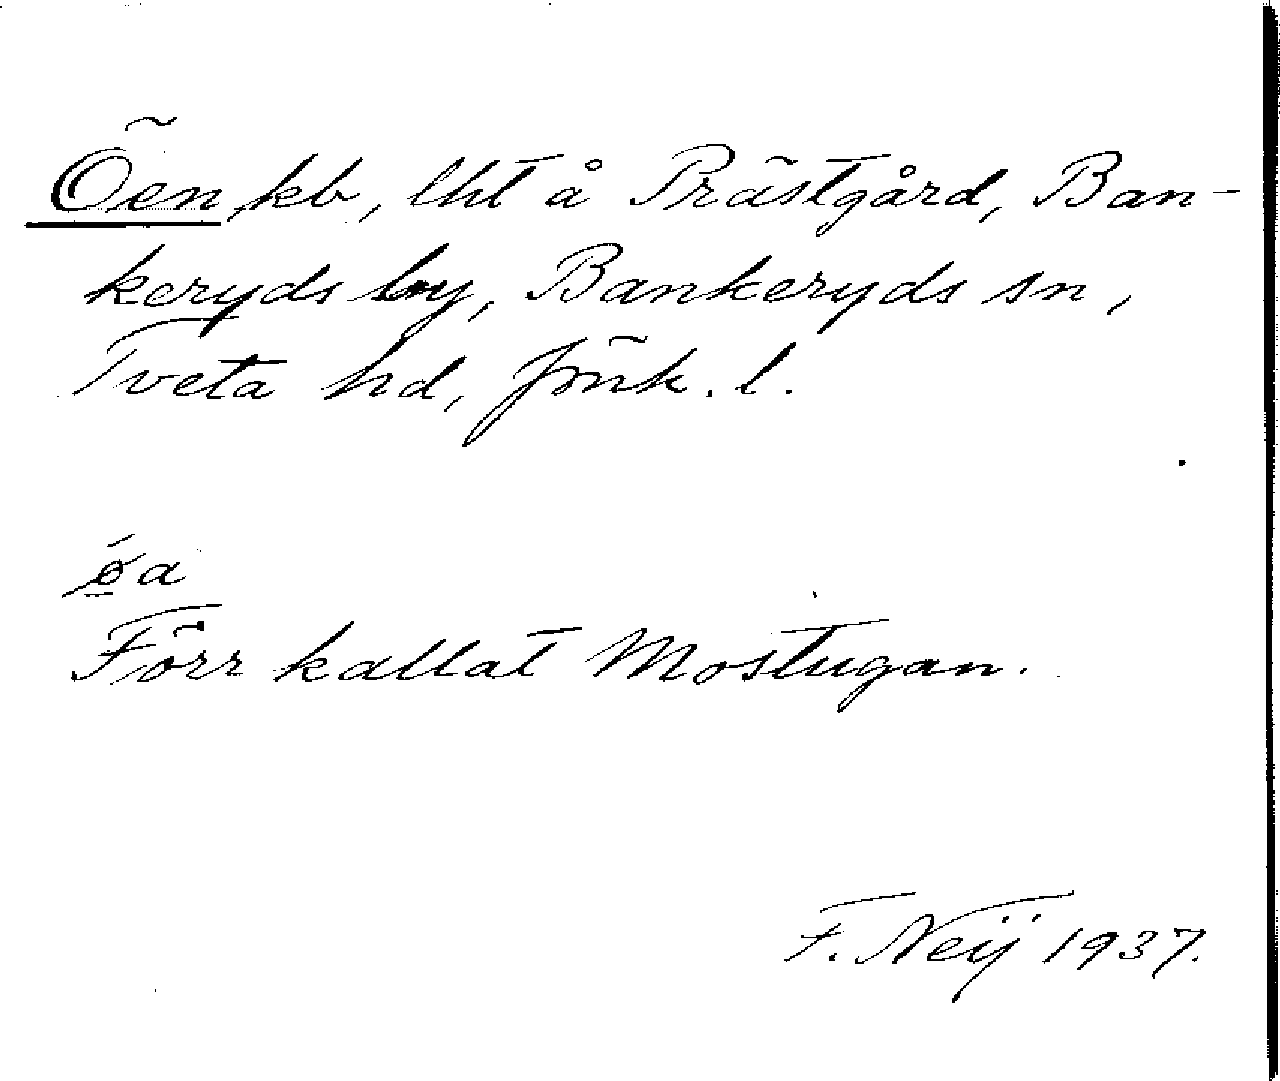 Öen kb, lht å Prästgård, Ban-
keryds by, Bankeryds sn,
Tveta hd, Jönk. l.
Förr kallat Mostugan.
F. Neij 1937.